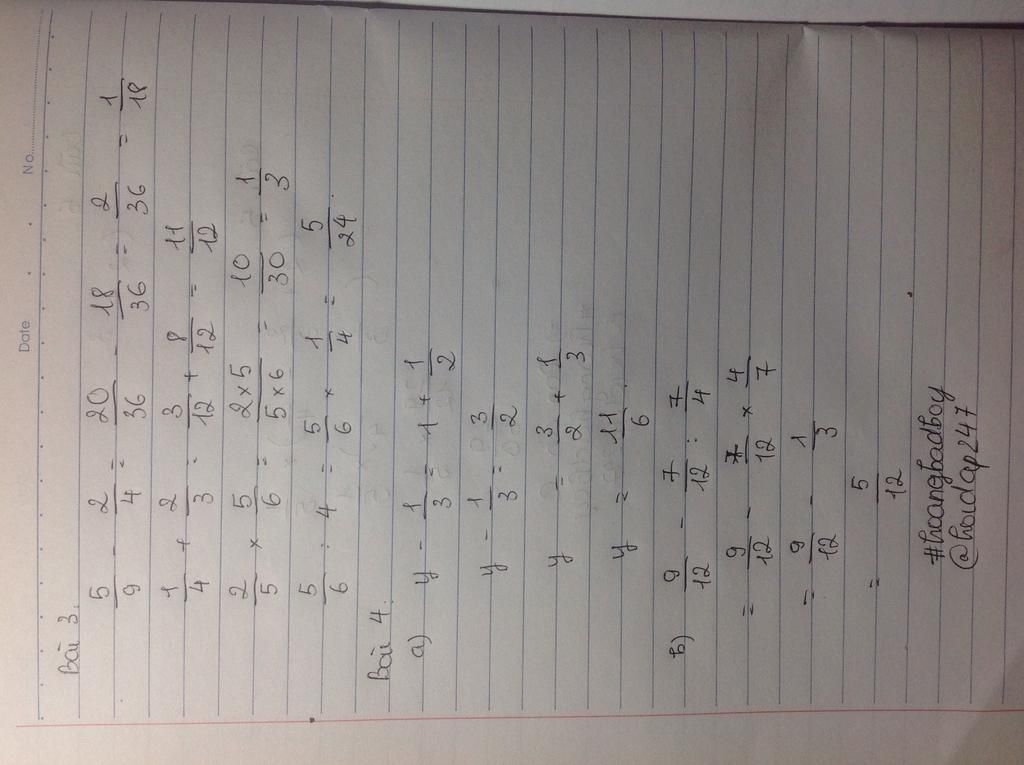 Date No.
Bài 3.
5/9 - 2/4 = 20/36 - 18/36 = 2/36 = 1/18
1/4 + 2/3 = 3/12 + 8/12 = 11/12
2/5 × 5/6 = 2×5/5×6 = 10/30 = 1/3
5/6 : 4 = 5/6 × 1/4 = 5/24
Bài 4.
a) y - 1/3 = 1 + 1/2
y - 1/3 = 3/2
y = 3/2 + 1/3
y = 11/6
b) 9/12 - 7/12 : 7/4
= 9/12 - 7/12 × 4/7
= 9/12 - 1/3
= 5/12
#hoangbadboy
@hoidap247